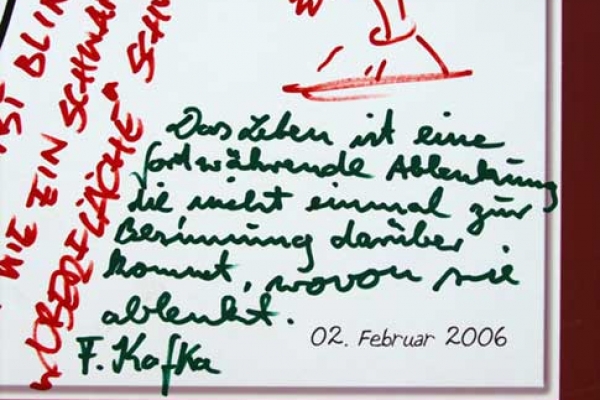 Das Leben ist eine
fortwährende Ablenkung
die nicht einmal zur
Besinnung darüber
kommt, wovon sie
ablenkt.
F. Kafka
02. Februar 2006
IST BLIN
WIE EIN SCHWA
"OBERFLÄCHE" SCH